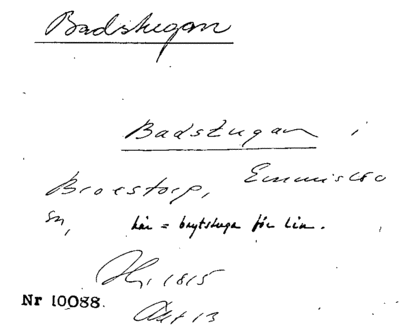 Badstugan
Badstugan i
Broestorp, Emmislöv
sn, här = brytstuga för lin.
Hj. 1815
Akt 13
Nr 10088